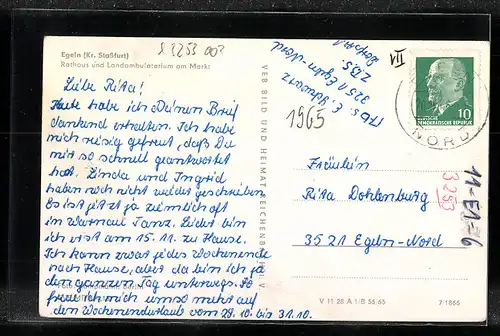 Egeln (Kr. Staßfurt)
Rathaus und Landambulatorium am Markt
Liebe Rita!
Heute habe ich Deinen Brief
dankend erhalten. Ich habe
mich riesig gefreut, daß Du
mir so schnell geantwortet
hast. Linda und Ingrid
haben noch nicht wieder geschrieben.
Es ist jetzt ja ziemlich oft
in Warnau Tanz. Leider bin
ich erst am 15.11. zu Hause.
Ich kann zwar jedes Wochenende
nach Hause, aber da bin ich ja
den ganzen Tag unterwegs. So
freue ich mich umso mehr auf
den Wochenendurlaub vom 28.10. bis 31.10.
VEB BILD UND HEIMAT REICHENBACH I. V.
E. Schwarz
3251 Egeln-Nord
ZBS
1965
VII
DEUTSCHE
DEMOKRATISCHE REPUBLIK
10
NORD
Fräulein
Rita Dohlenburg
3521 Egeln-Nord
3253
11-E1-76
V 11 28 A 1/B 56/65
7/1865